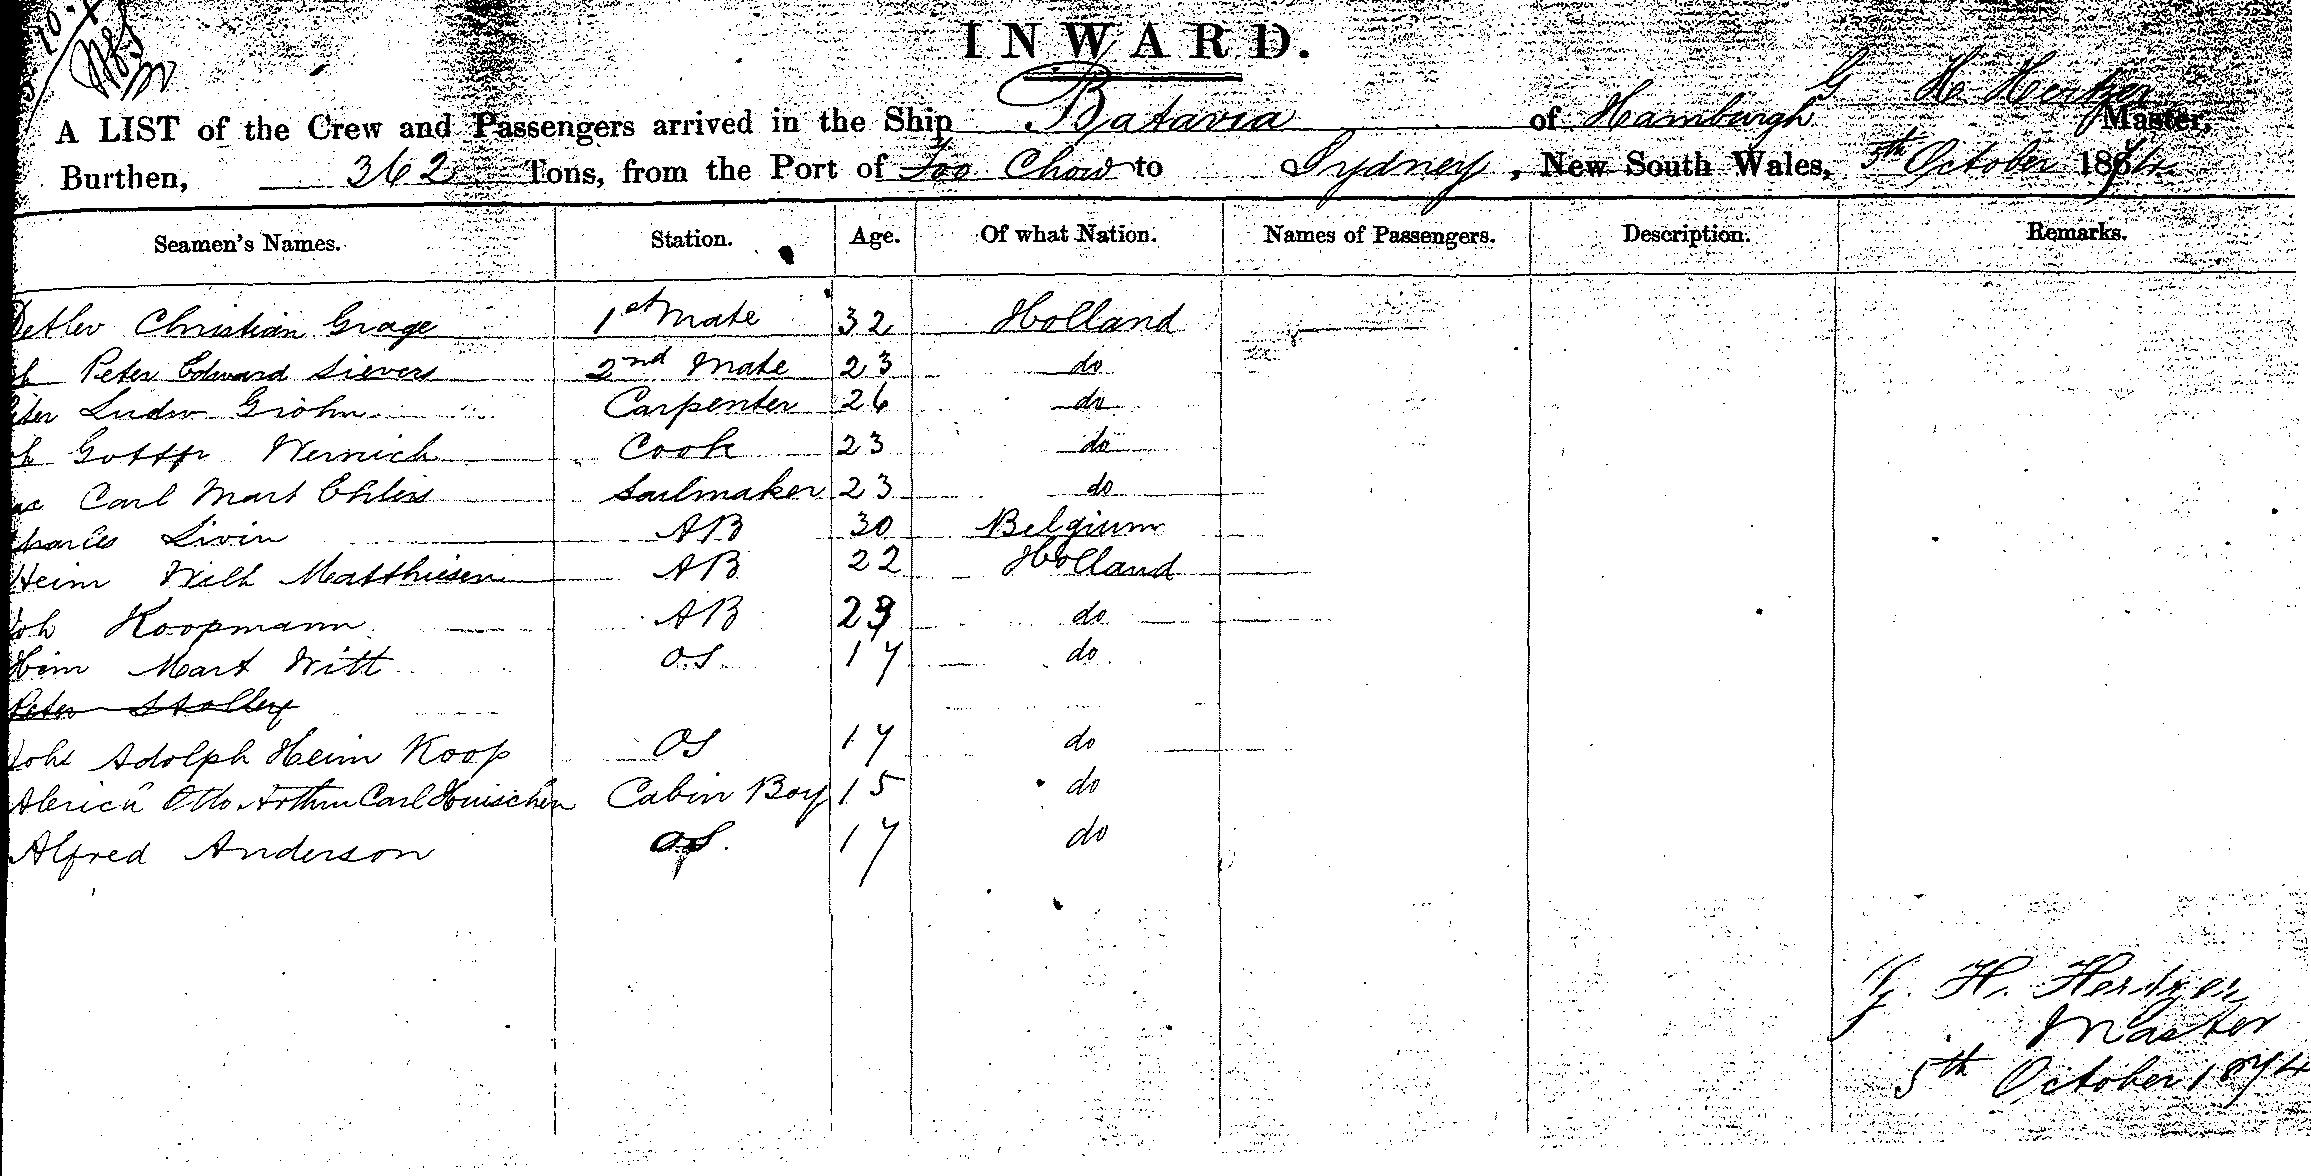 INWARD.
A LIST of the Crew and Passengers arrived in the Ship Batavia of Hamburgh G H Hertzer Master,
Burthen, 362 Tons, from the Port of Foo Chow to Sydney, New South Wales, 5th October 1874
Seamen's Names. Station. Age. Of what Nation. Names of Passengers. Description. Remarks.
Detlev Christian Grage 1st Mate 32 Holland
Peter Edward Sievers 2nd Mate 23 do
Ludw Grohn Carpenter 26 do
Gottfr Wernich Cook 23 do
Carl Mart Ehlers Sailmaker 23 do
Charles Livin AB 30 Belgium
Heim Wilh Matthiesen AB 22 Holland
Joh Koopmann AB 29 do
Heim Mart Witt OS 17 do
Peter Stolley
Johs Adolph Heim Koop OS 17 do
Otto Arthur Carl Cabin Boy 15 do
Alfred Anderson OS. 17 do
G. H. Hertzer
Master
5th October 1874